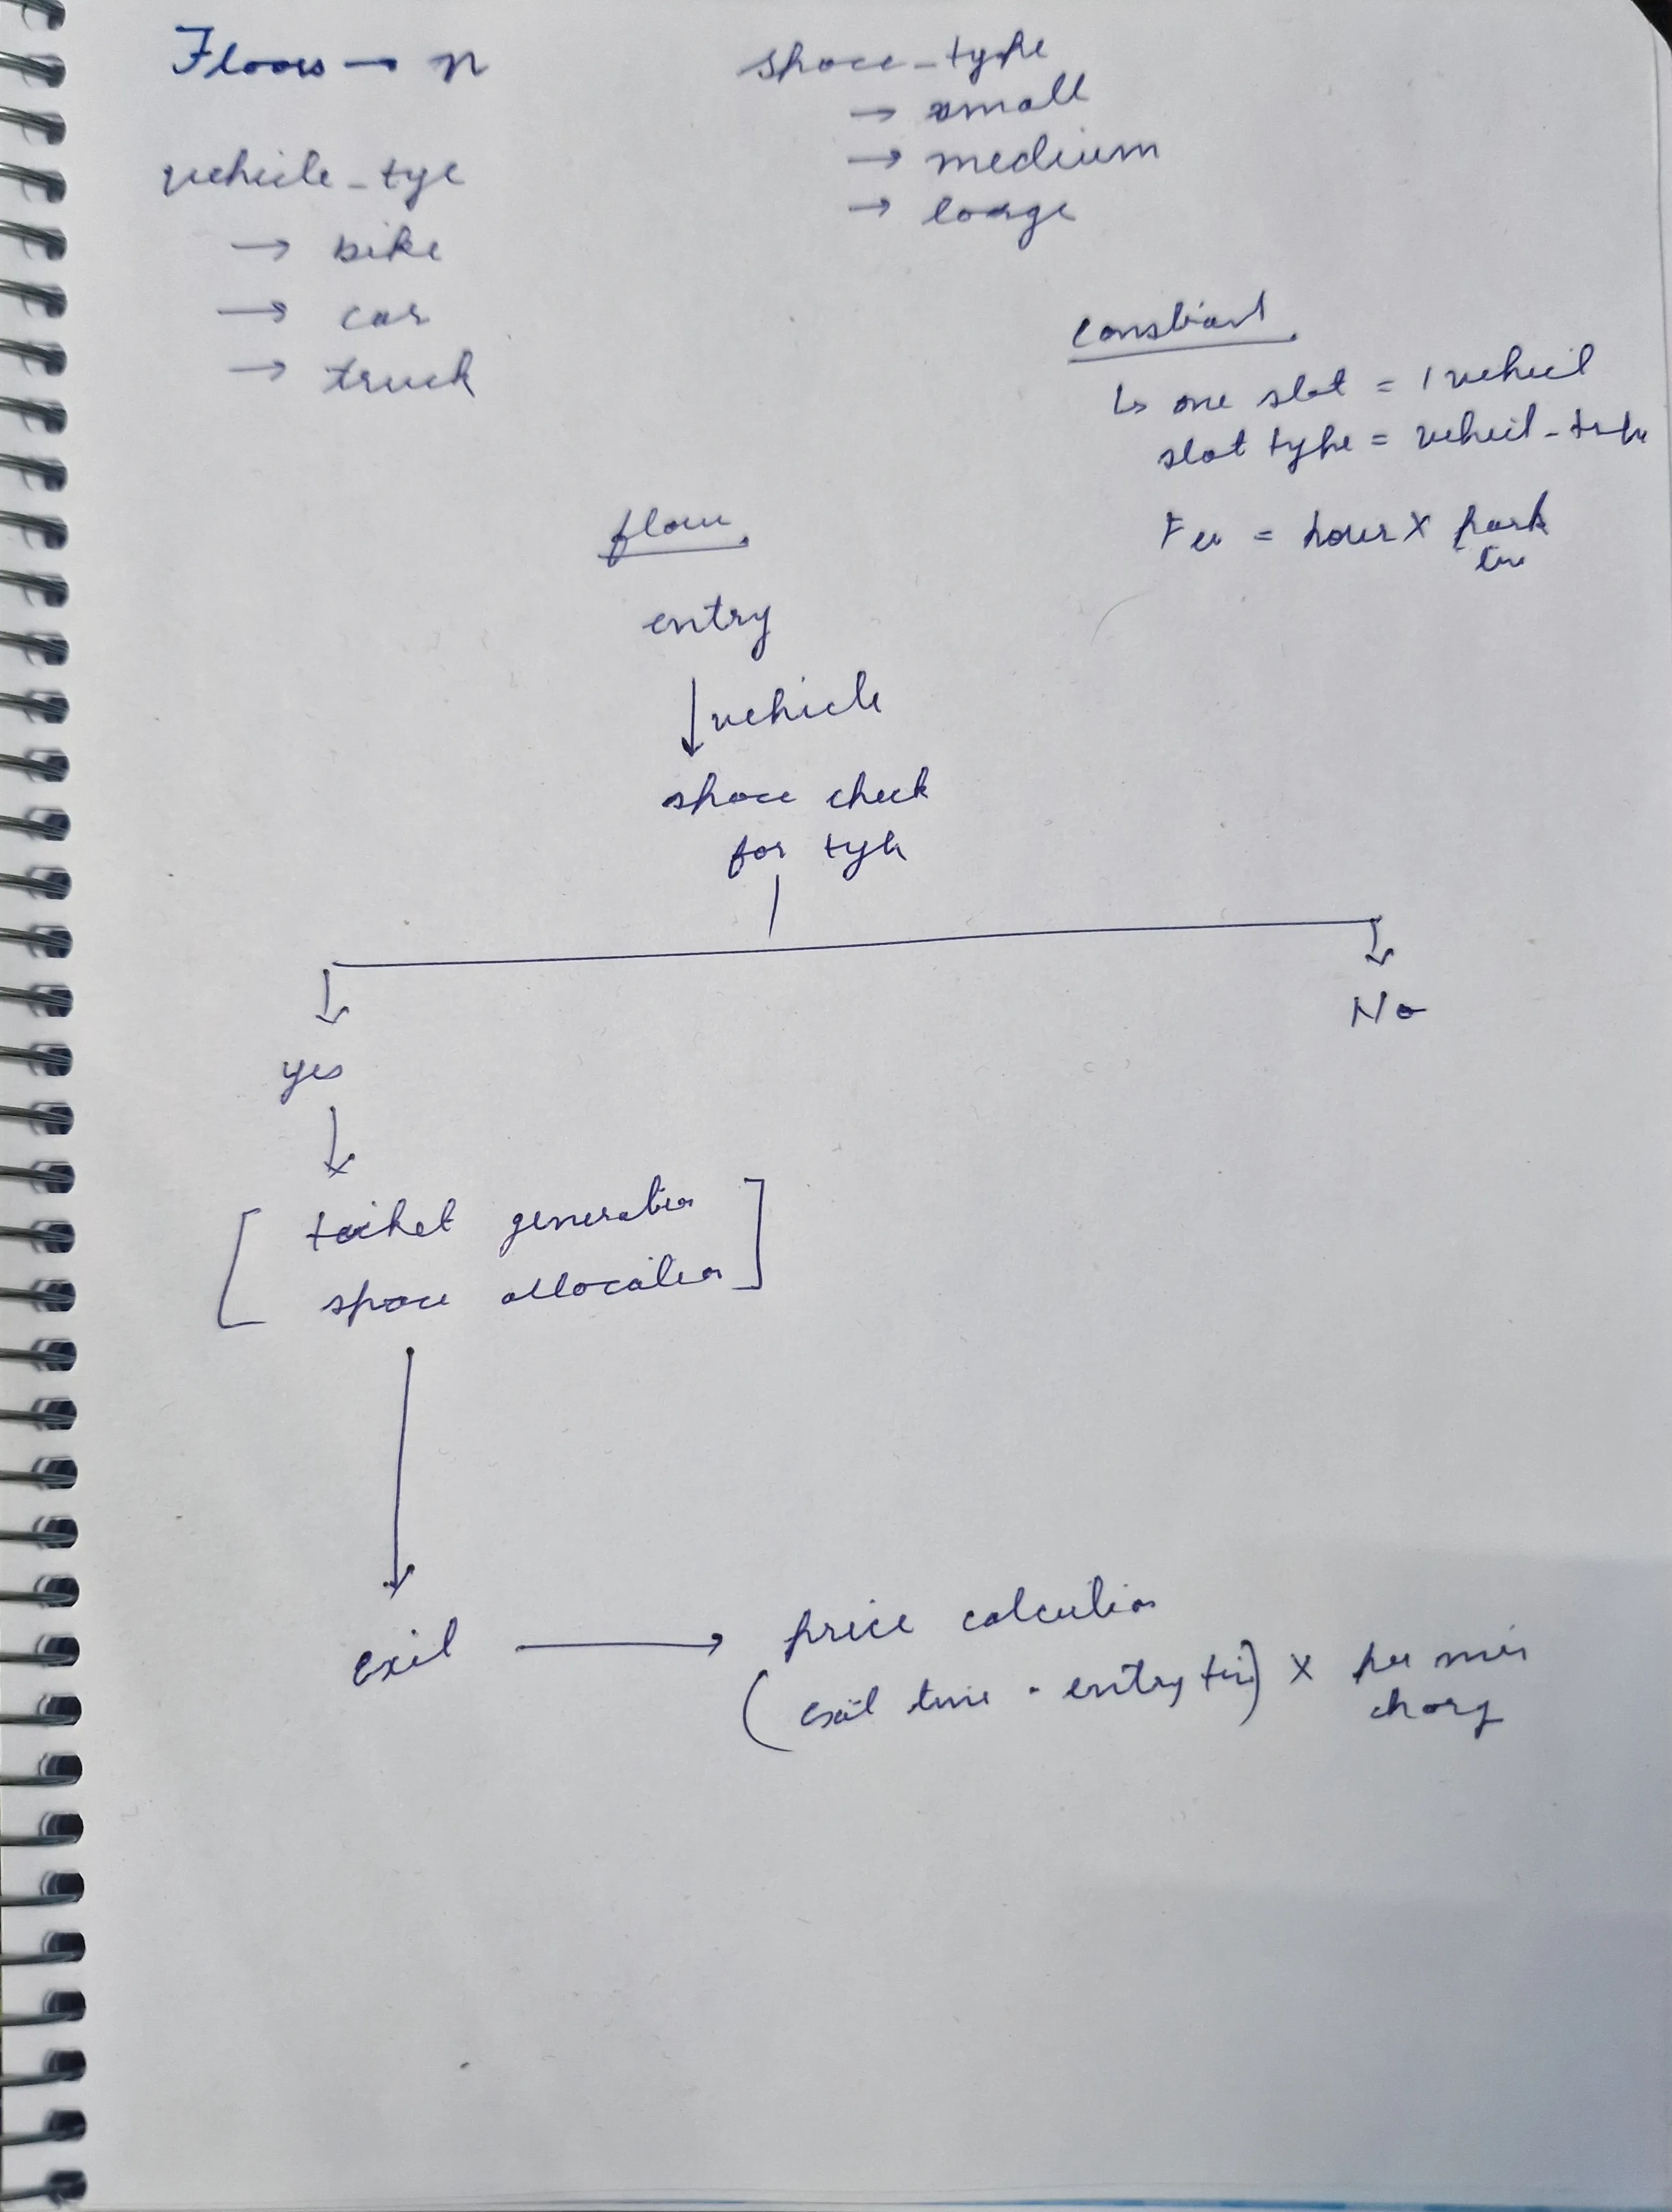 Floors → n
vehicle_tye
→ bike
→ car
→ truck
space_type
→ small
→ medium
→ large
constraint
↳ one slot = 1 vehicl
slot type = vehicl-type
Fee = hour X park
flow
entry
↓ vehicle
space check
for type
yes
No
[ ticket generation
space allocation ]
exit → price calculation
(exit time - entry time) X per min
charg